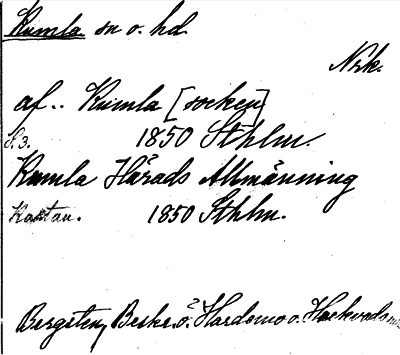 Kumla sn o. hd.
Nrk.
af.. Kumla [socken]
S. 3. 1850 Sthlm.
Kumla Härads Allmänning
Kartan. 1850 Sthlm.
Bergsten, Beskr. o. Hardemo o. Hackvads